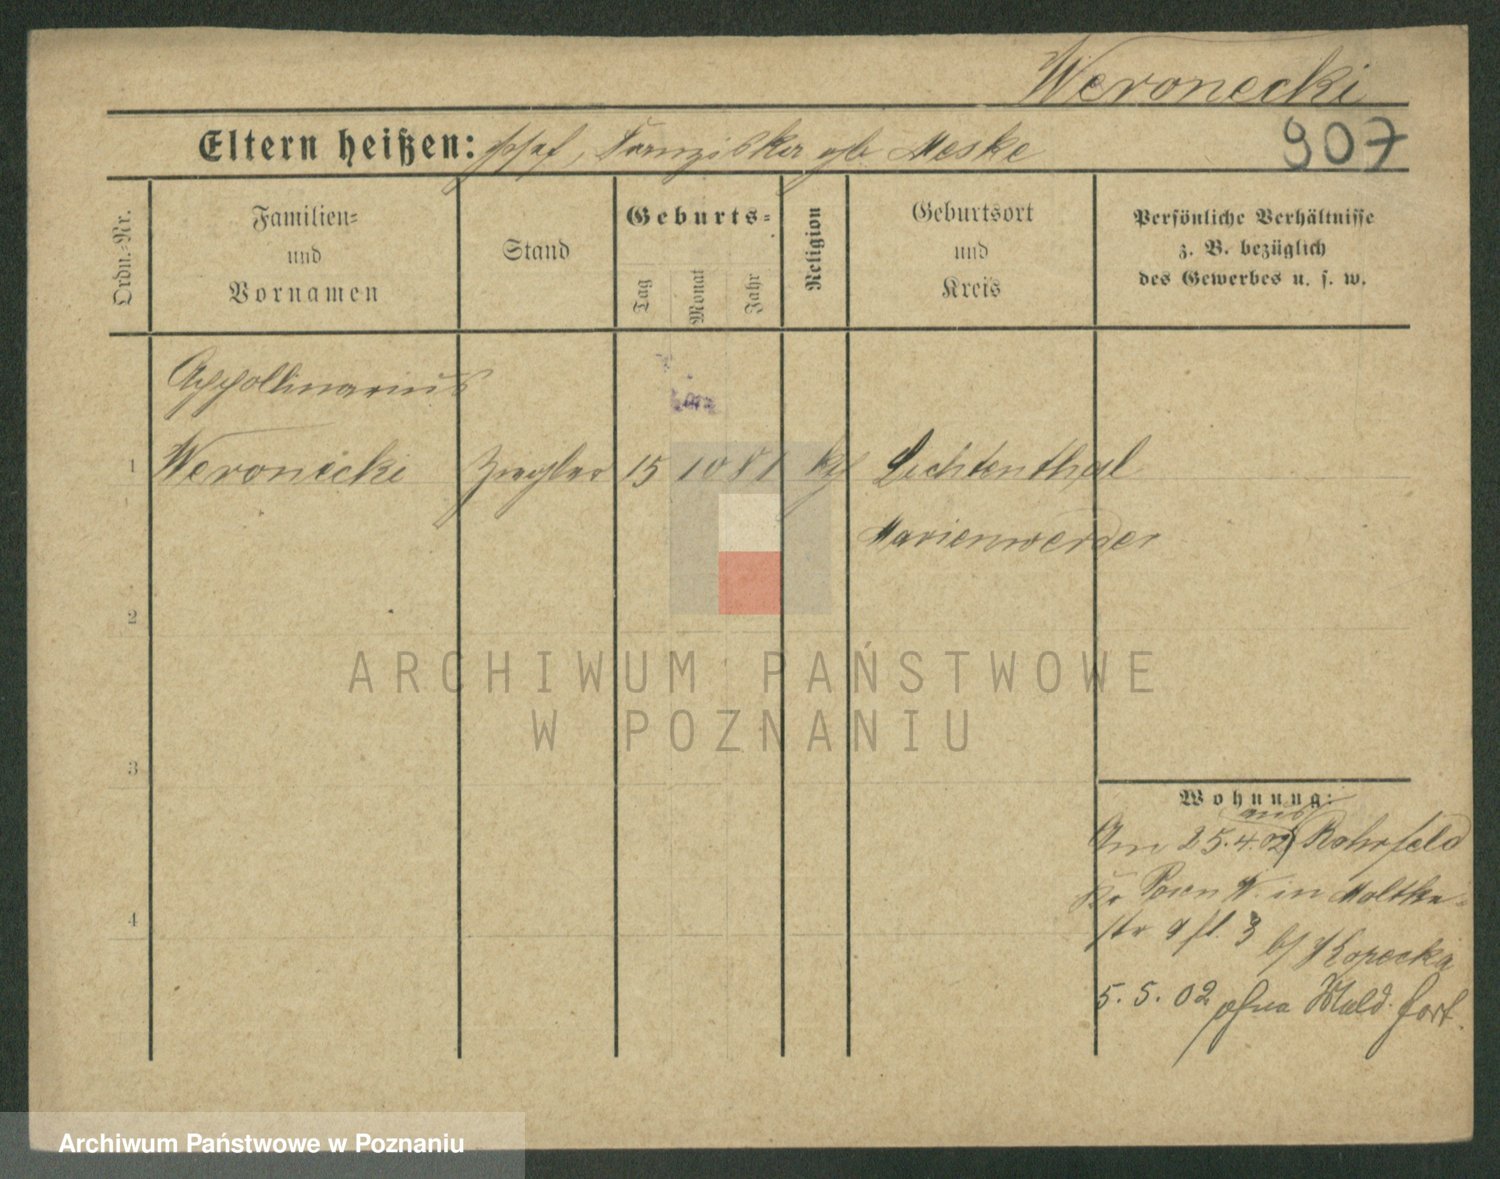 Weronecki
907
Eltern heißen: Josef, Franziska geb Meske
Ordn.-Nr.
Familien-
und
Vornamen
Stand
Geburts-
Tag
Monat
Jahr
Religion
Geburtsort
und
Kreis
Persönliche Verhältnisse
z. B. bezüglich
des Gewerbes u. s. w.
Appollinarius
1 Weronicki Ziegler 15 10 81 kth Lichtenthal
Marienwerder
2
3
4
Wohnung:
aus
Am 25.4.02 Rohrfeld
Kr Posen W. in Moltke-
str 9 fl. 3
b/ Kopecka
5. 5. 02 ohne Meld. fort.
ARCHIWUM PAŃSTWOWE
W POZNANIU
Archiwum Państwowe w Poznaniu